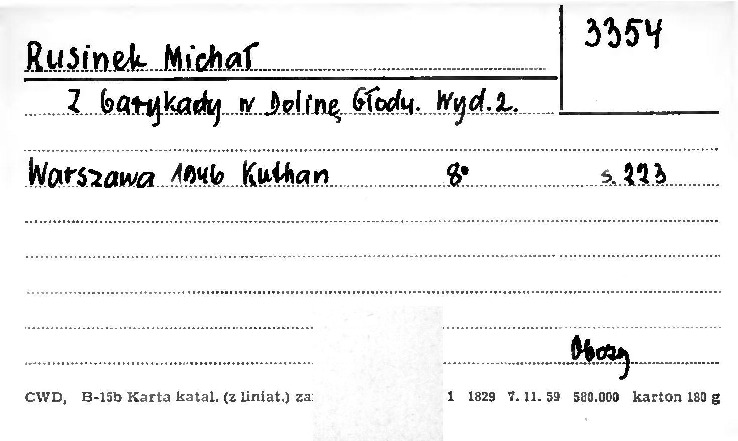 3354
Rusinek Michał
Z barykady w Dolinę Głodu. Wyd. 2.
Warszawa 1946 Kuthan 8° s. 223
Obozy
CWD, B-15b Karta katal. (z liniat.) za 1 1829 7. 11. 59 580.000 karton 180 g